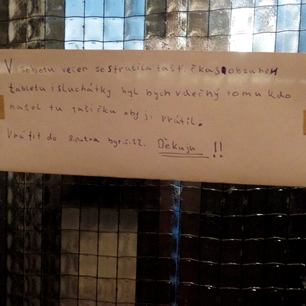 V sobotu večer se ztratila taštička s obsahem
tabletu i sluchátky byl bych vdečný tomu kdo
našel tu tašičku aby ji vrátil.
Vrátit do byt.č.52. Děkuju!!